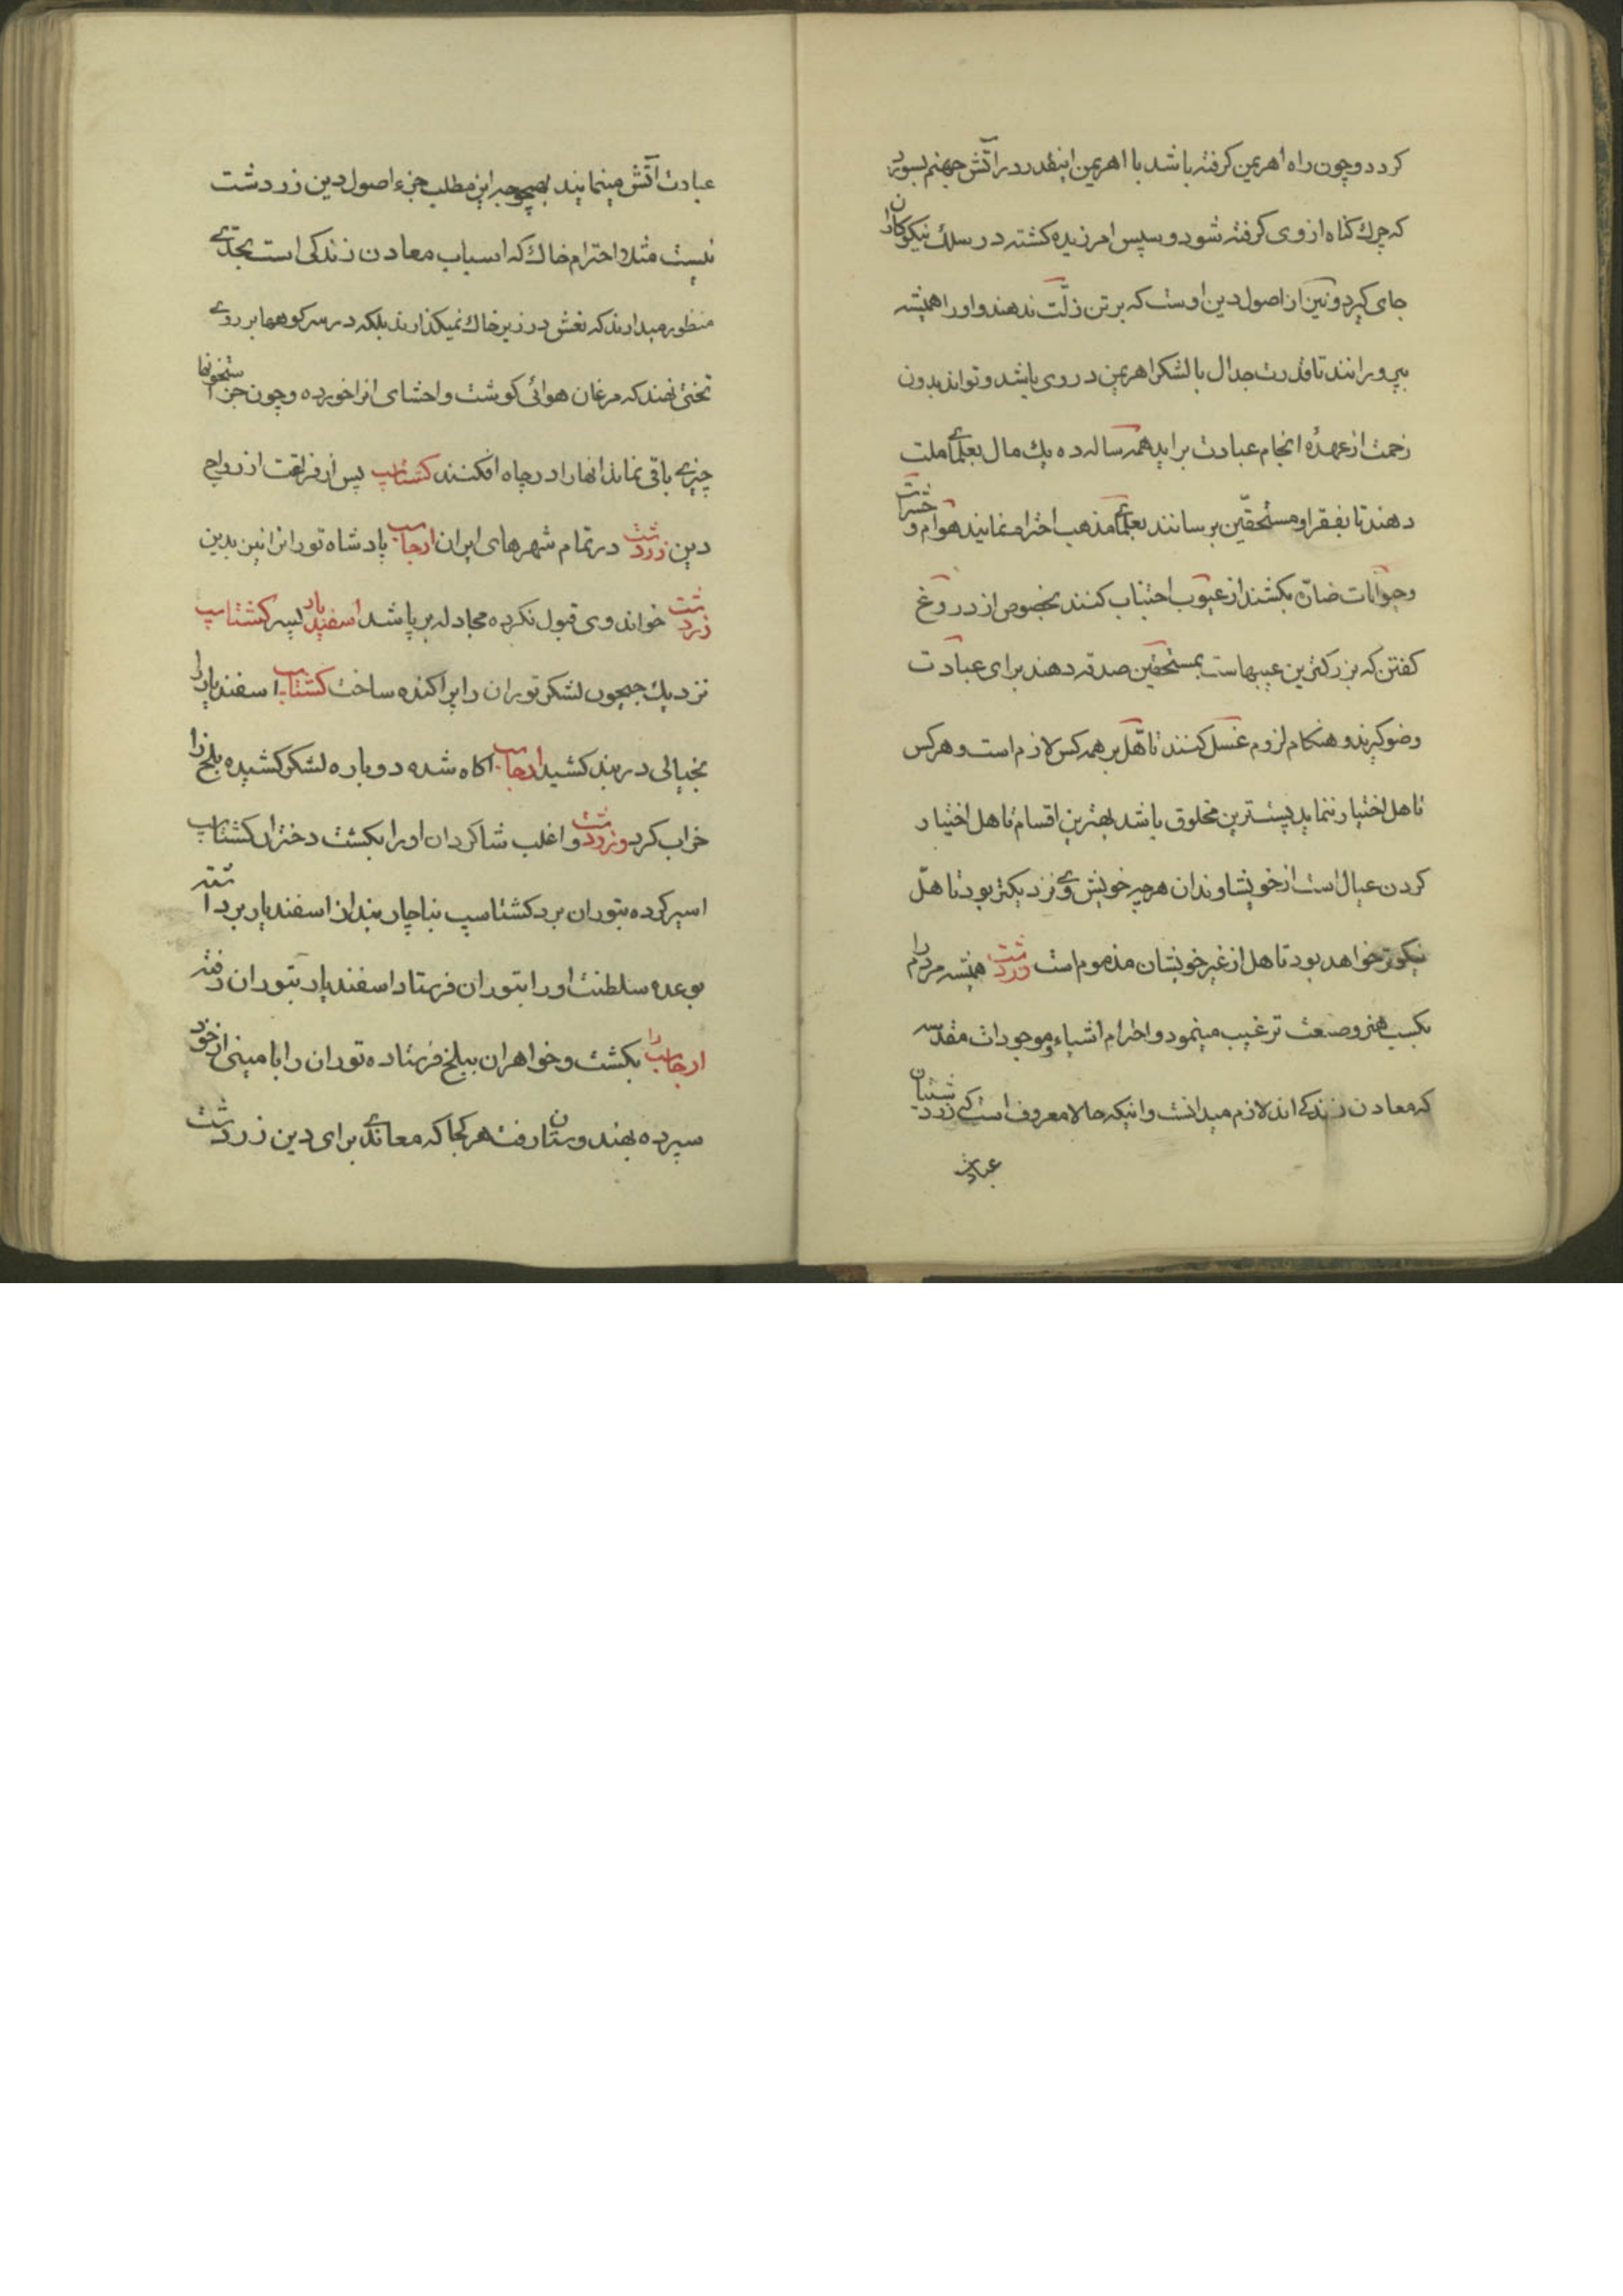 کردد وچون راه اهریمن کرفته باشد با اهریمن اینقدر در آتش جهنم بسوزد
که چرك کناه از وی کرفته شود و سپس امرزیده کشته در سلك نیکوکاران
جای کیرد ونین از اصول دین اوست که بر تن زلّت ندهند و اورا همیشه
بپرورانند تا قدرت جدال با لشکر اهریمن در وی باشد و تواند بدون
زحمت از عهدهٔ انجام عبادت براید همه ساله ده یك مال بعلمای ملت
دهند تا بفقرا و مستحقّین برسانند بعلمای مذهب احترام نمایند هوام و حشرات
وحیوانات ضارّه بکشند از عیوب اجتناب کنند بخصوص از دروغ
کفتن که بزرکترین عیبهاست بمستحقین صدقه دهند برای عبادت
وضو کیرند و هنکام لزوم غسل کنند تاهّل بر همه کس لازم است و هر کس
تاهل اختیار ننماید پست‌ترین مخلوق باشد بهترین اقسام تاهل اختیار
کردن عیال است از خویشاوندان هر چه خویش وی نزدیکتر بود تاهّل
نیکوتر خواهد بود تاهل از غیر خویشان مذموم است زردشت همیشه مردم را
بکسب هنر وصنعت ترغیب مینمود و احترام اشیاء و موجودات مقدسه
که معادن زندکی اند لازم میدانست و اینکه حالا معروف است که زردشتیان
عبادت
عبادت آتش مینمایند بهیچوجه این مطلب جزء اصول دین زردشت
نیست مثلا احترام خاك که اسباب معادن زندکی است بحدّی
منظور میدارند که نعش در زیر خاك نمیکذارند بلکه در سر کوهها بر روی
تختی نهند که مرغان هوائی کوشت و احشای انرا خورده و چون جز استخوانها
چیزی باقی نماند انها را در چاه افکنند کشتاسپ پس از فراغت از رواج
دین زردشت در تمام شهرهای ایران ارجاسب پادشاه تورانرا نین بدین
زردشت خواند وی قبول نکرده مجادله بر پا شد اسفندیار پسر کشتاسپ
نزدیك جیحون لشکر توران را پراکنده ساخت کشتاسپ اسفندیار را
بخیالی در بند کشید ارجاسب اکاه شده دوباره لشکر کشیده بلخ را
خراب کرد و زردشت و اغلب شاکردان او را بکشت دختران کشتاسپ
اسیر کرده بتوران برد کشتاسپ بناچار بند از اسفندیار برداشته
بوعده سلطنت اورا بتوران فرستاد اسفندیار بتوران رفته
ارجاسب را بکشت و خواهران ببلخ فرستاده توران را بامینی از خود
سپرده بهندوستان رفت هر کجا که معاندی برای دین زردشت